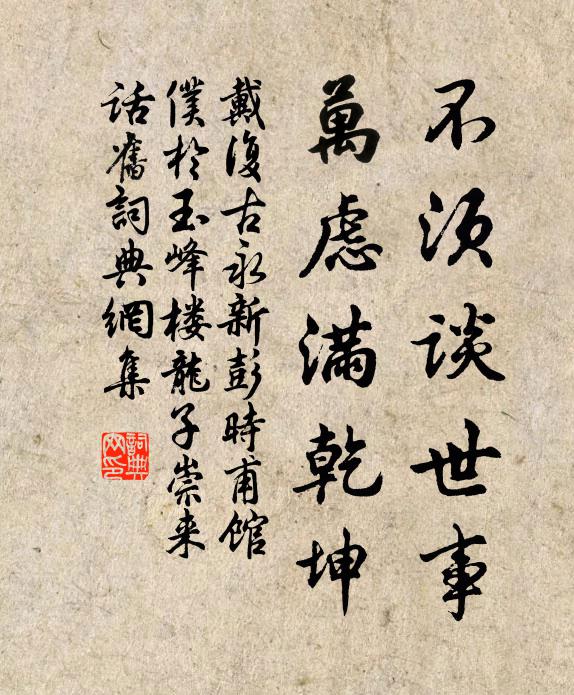 不須談世事
萬慮滿乾坤
戴復古永新彭時甫館
僕於玉峰楼龍子崇来
話舊詞典網集
詞典網印